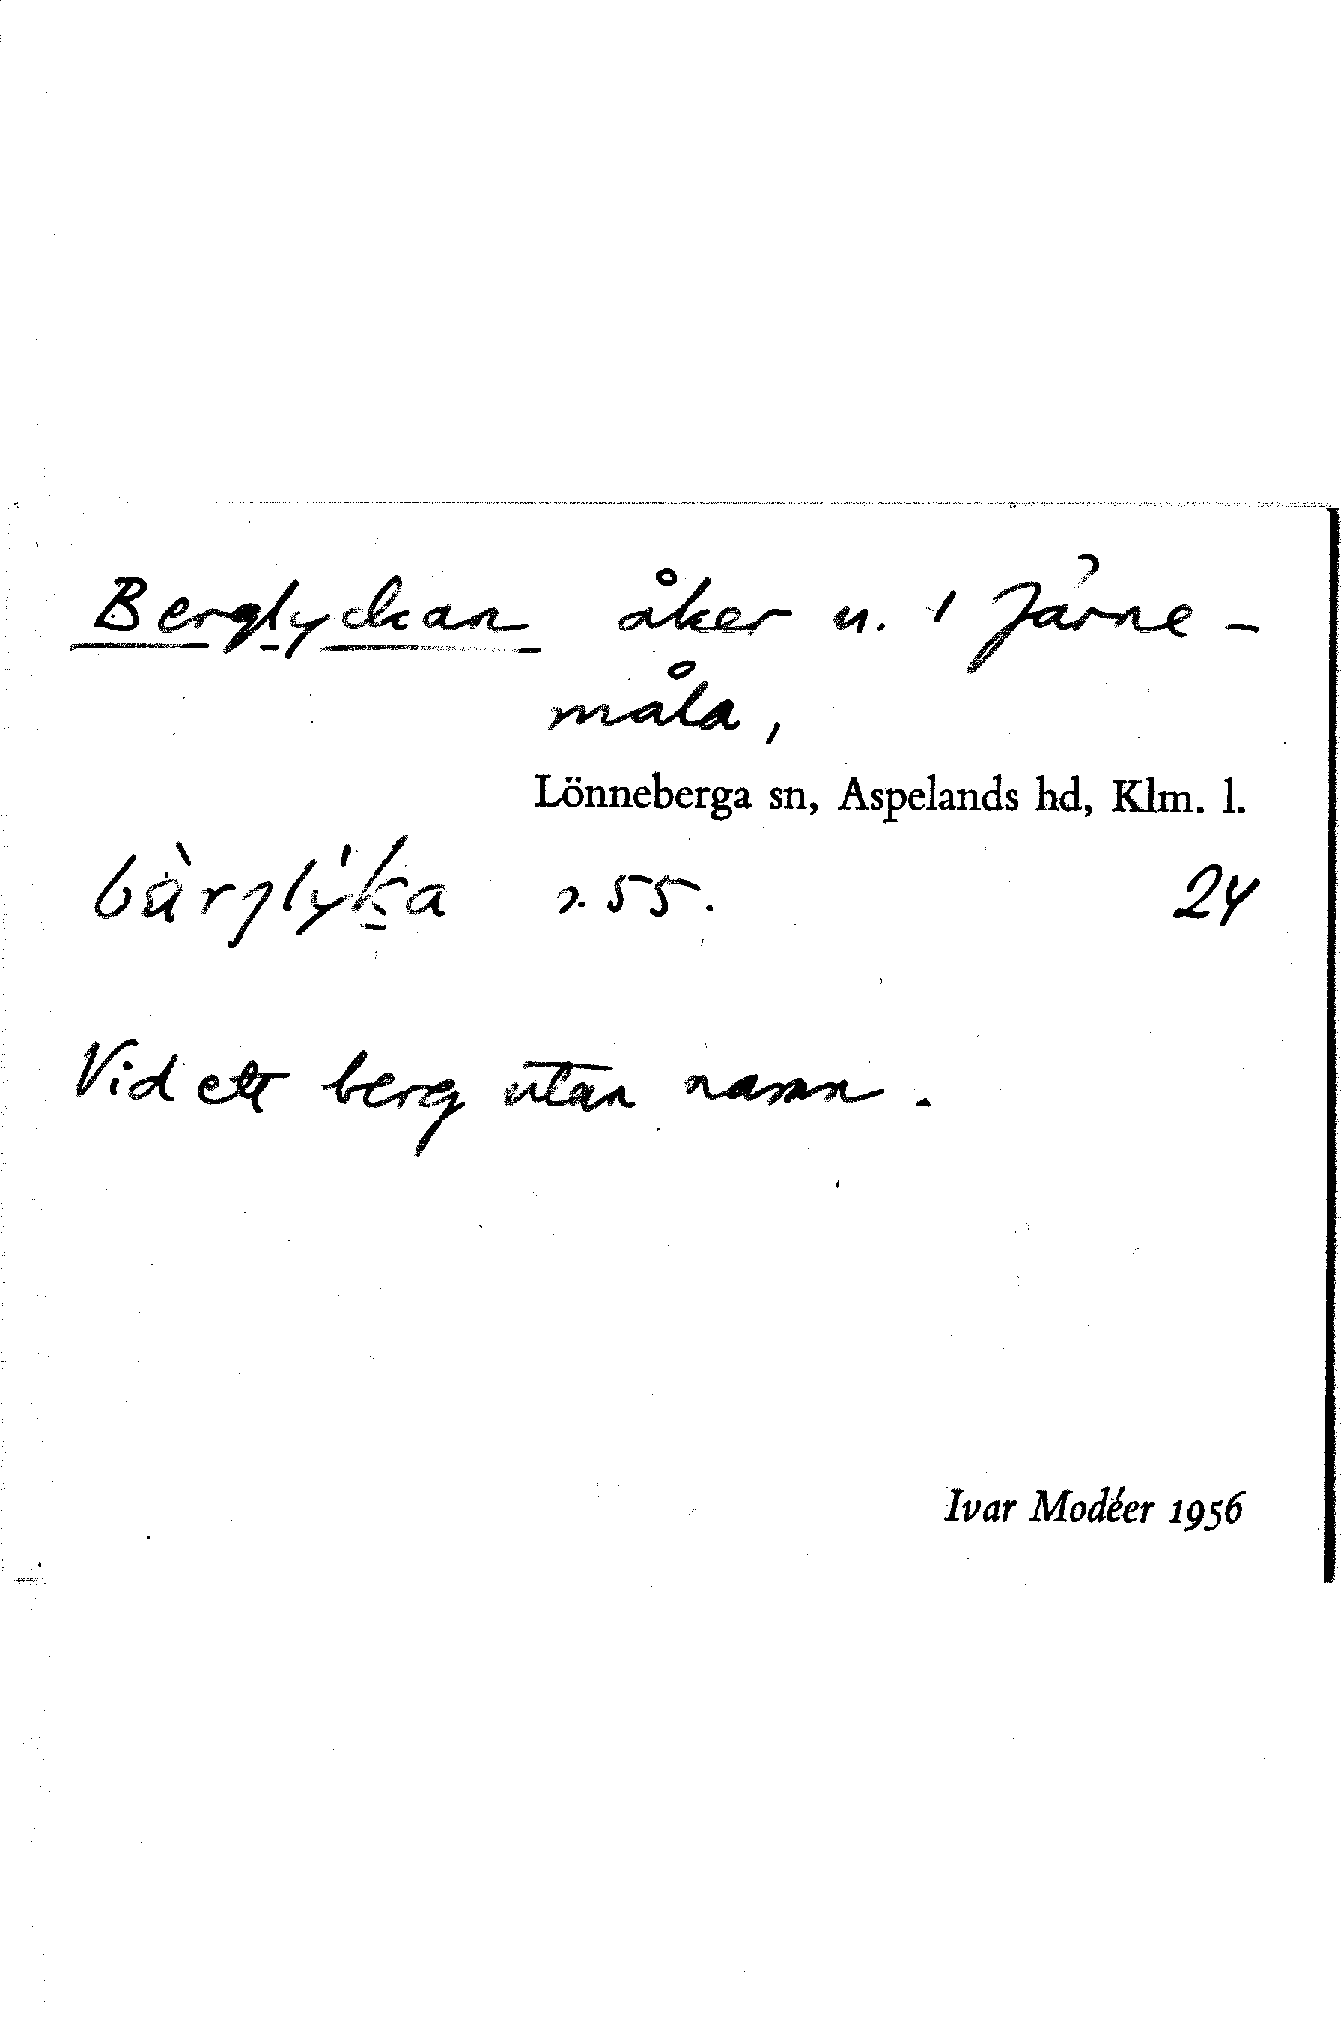 Berglyckan åker n. 1 Järne-
måla,
Lönneberga sn, Aspelands hd, Klm. l.
bàrjlýka s. 55. 24
Vid ett berg utan namn.
Ivar Modéer 1956